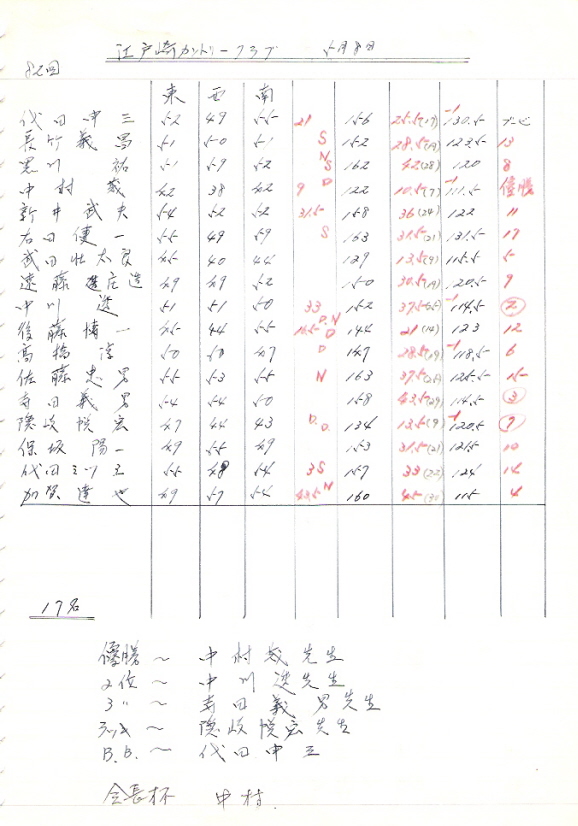 江戸崎カントリークラブ 5月8日
82回
東 西 南
代田中三 52 49 55 21 156 25.5(17) -1 130.5 ブービ
長竹義昌 51 50 51 S 152 28.5(19) 123.5 13
黒川 祐 51 59 52 N S 162 42(28) 120 8
中村 哉 42 38 42 D 9 122 10.5(7) -1 111.5 優勝
新井武夫 54 52 52 31.5 158 36(24) 122 11
右田健一 55 49 59 S 163 31.5(21) 131.5 17
武田壮太良 45 40 44 129 13.5(9) 115.5 5
遠藤庄造 49 49 52 150 30.5(19) 120.5 9
中川 透 51 51 50 33 152 37.5(25) -1 114.5 2
後藤博一 45 44 55 16.5 D.N D 144 21(14) 123 12
高橋 淳 50 50 47 D 147 28.5(19) -1 118.5 6
佐藤忠男 55 53 55 N 163 37.5(25) 125.5 15
寺田義男 54 54 50 158 43.5(29) 114.5 3
隠岐悦宏 47 44 43 D.D. 134 13.5(9) -1 120.5 7
保坂陽一 49 55 49 153 31.5(21) 121.5 10
代田ミツ王 55 48 54 3S 157 33(22) 124 14
加賀達也 49 57 54 43.5 N 160 45(30) 115 4
17名
優勝 〜 中村哉先生
2位 〜 中川透先生
3〃 〜 寺田義男先生
ラッキ 〜 隠岐悦宏先生
B.B. 〜 代田中三
会長杯 中村